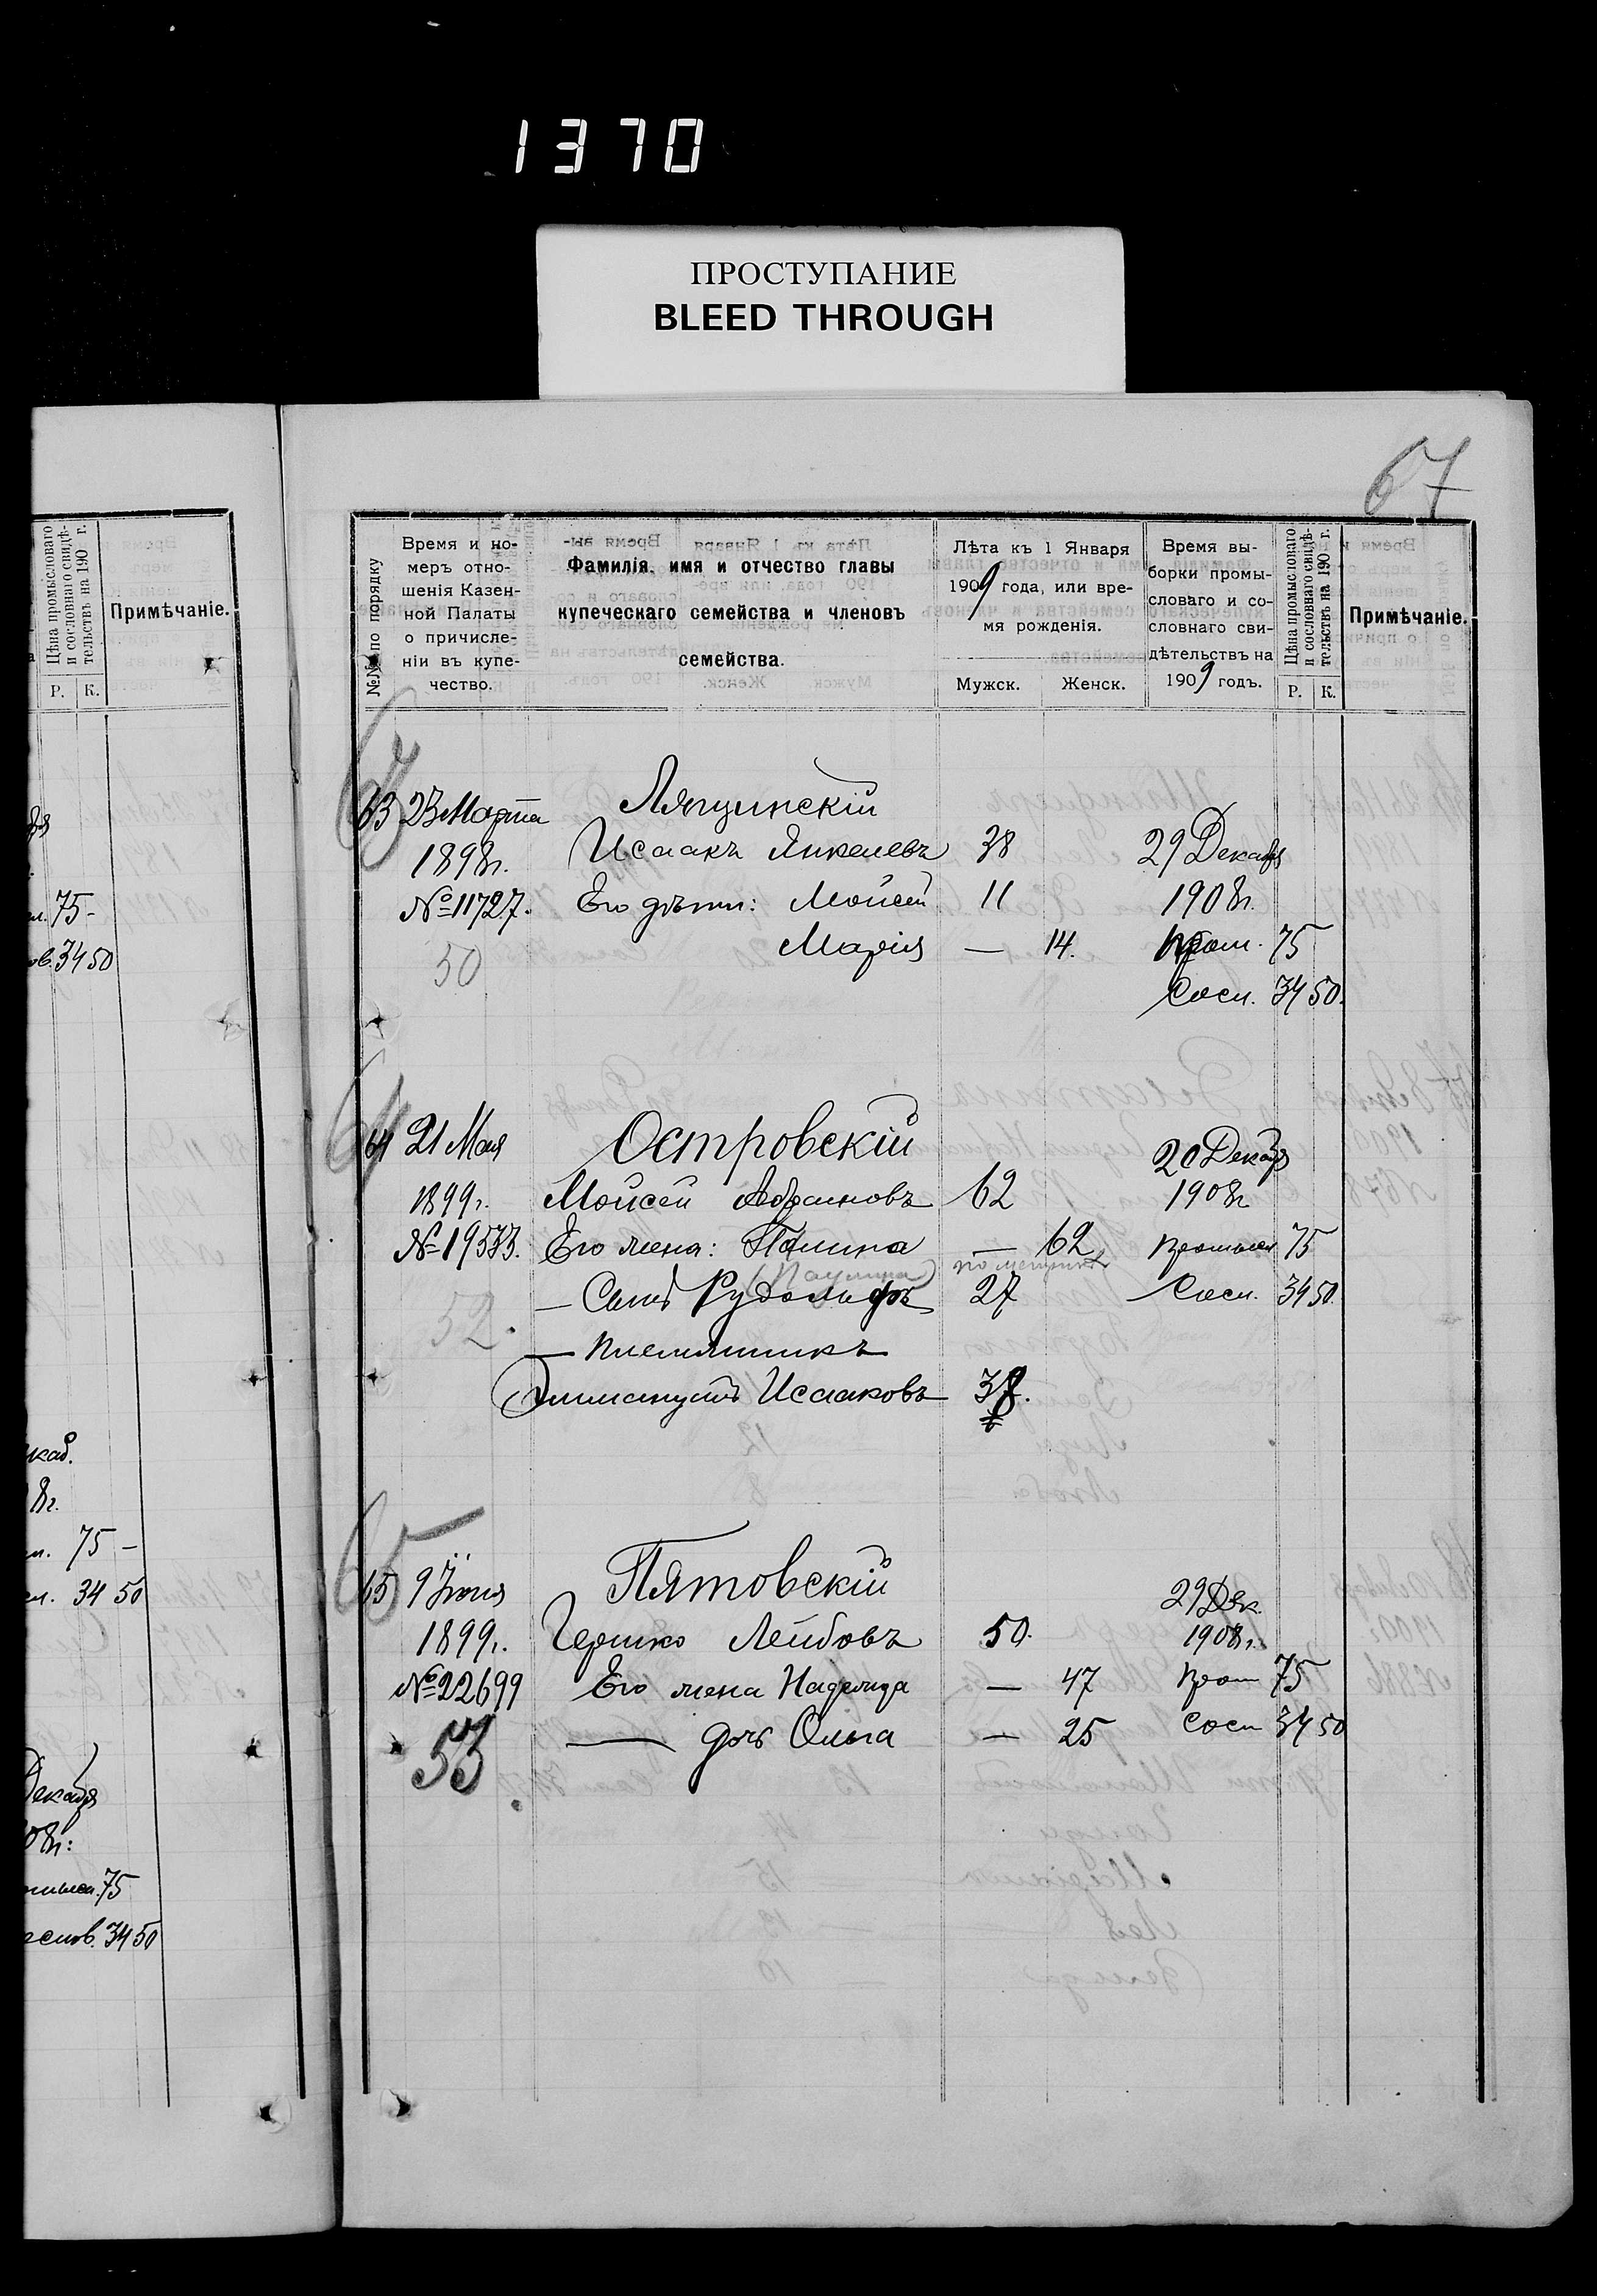 1370
ПРОСТУПАНИЕ
BLEED THROUGH
67
Цѣна промысловаго и сословнаго свидѣ-тельствъ на 190 г.
Р. К.
Примѣчаніе.
75 -
34 50
75 -
34 50
75
34 50
№№ по порядку
Время и но-
меръ отно-
шенія Казен-
ной Палаты
о причисле-
ніи въ купе-
чество.
Фамилія, имя и отчество главы
купеческаго семейства и членовъ
семейства.
Лѣта къ 1 Января
1909 года, или вре-
мя рожденія.
Мужск. Женск.
Время вы-
борки промы-
словаго и со-
словнаго сви-
дѣтельствъ на
1909 годъ.
Цѣна промысловаго
и сословнаго свидѣ-
тельствъ на 190 г.
Р. К.
Примѣчаніе.
63 23 Марта
1898г.
№ 11727.
50
Исаакъ Янкелевъ 38 29 Декабря
Его дѣти: Мойсей 11 1908г.
Марія — 14. Пром. 75
Сосл. 34 50.
64 21 Мая Островскій 20 Декабря
1899г. Мойсей Абрамовъ 62 1908г
№ 19533. Его жена: Полина — 62 Промысл 75
(Паулина)
— Сынъ Рудольфъ 27 Сосл. 34 50.
52.
— племянникъ
Эммануилъ Исааковъ 38.
65 9 Іюня Пятовскій 29 Дек.
1899г. Гершко Лейбовъ 50. 1908г.
№ 22699 Его жена Надежда — 47 Пром 75
53. — дочь Ольга — 25 Сосл 34 50